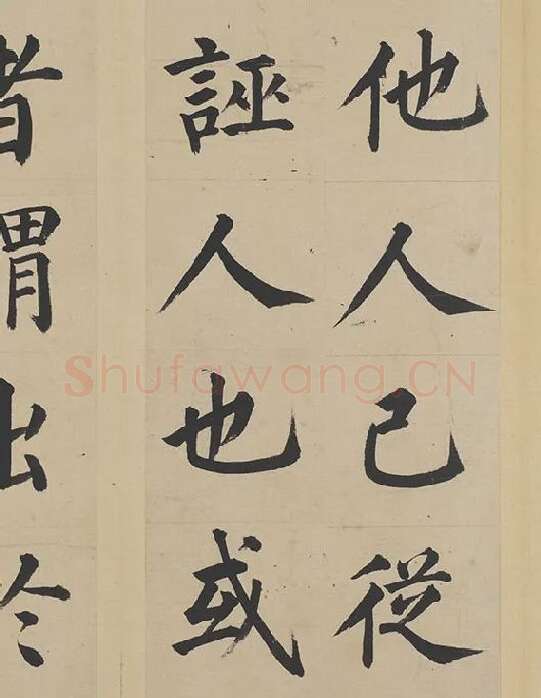 他人己從
誣人也或
者謂出於
Shufawang.CN